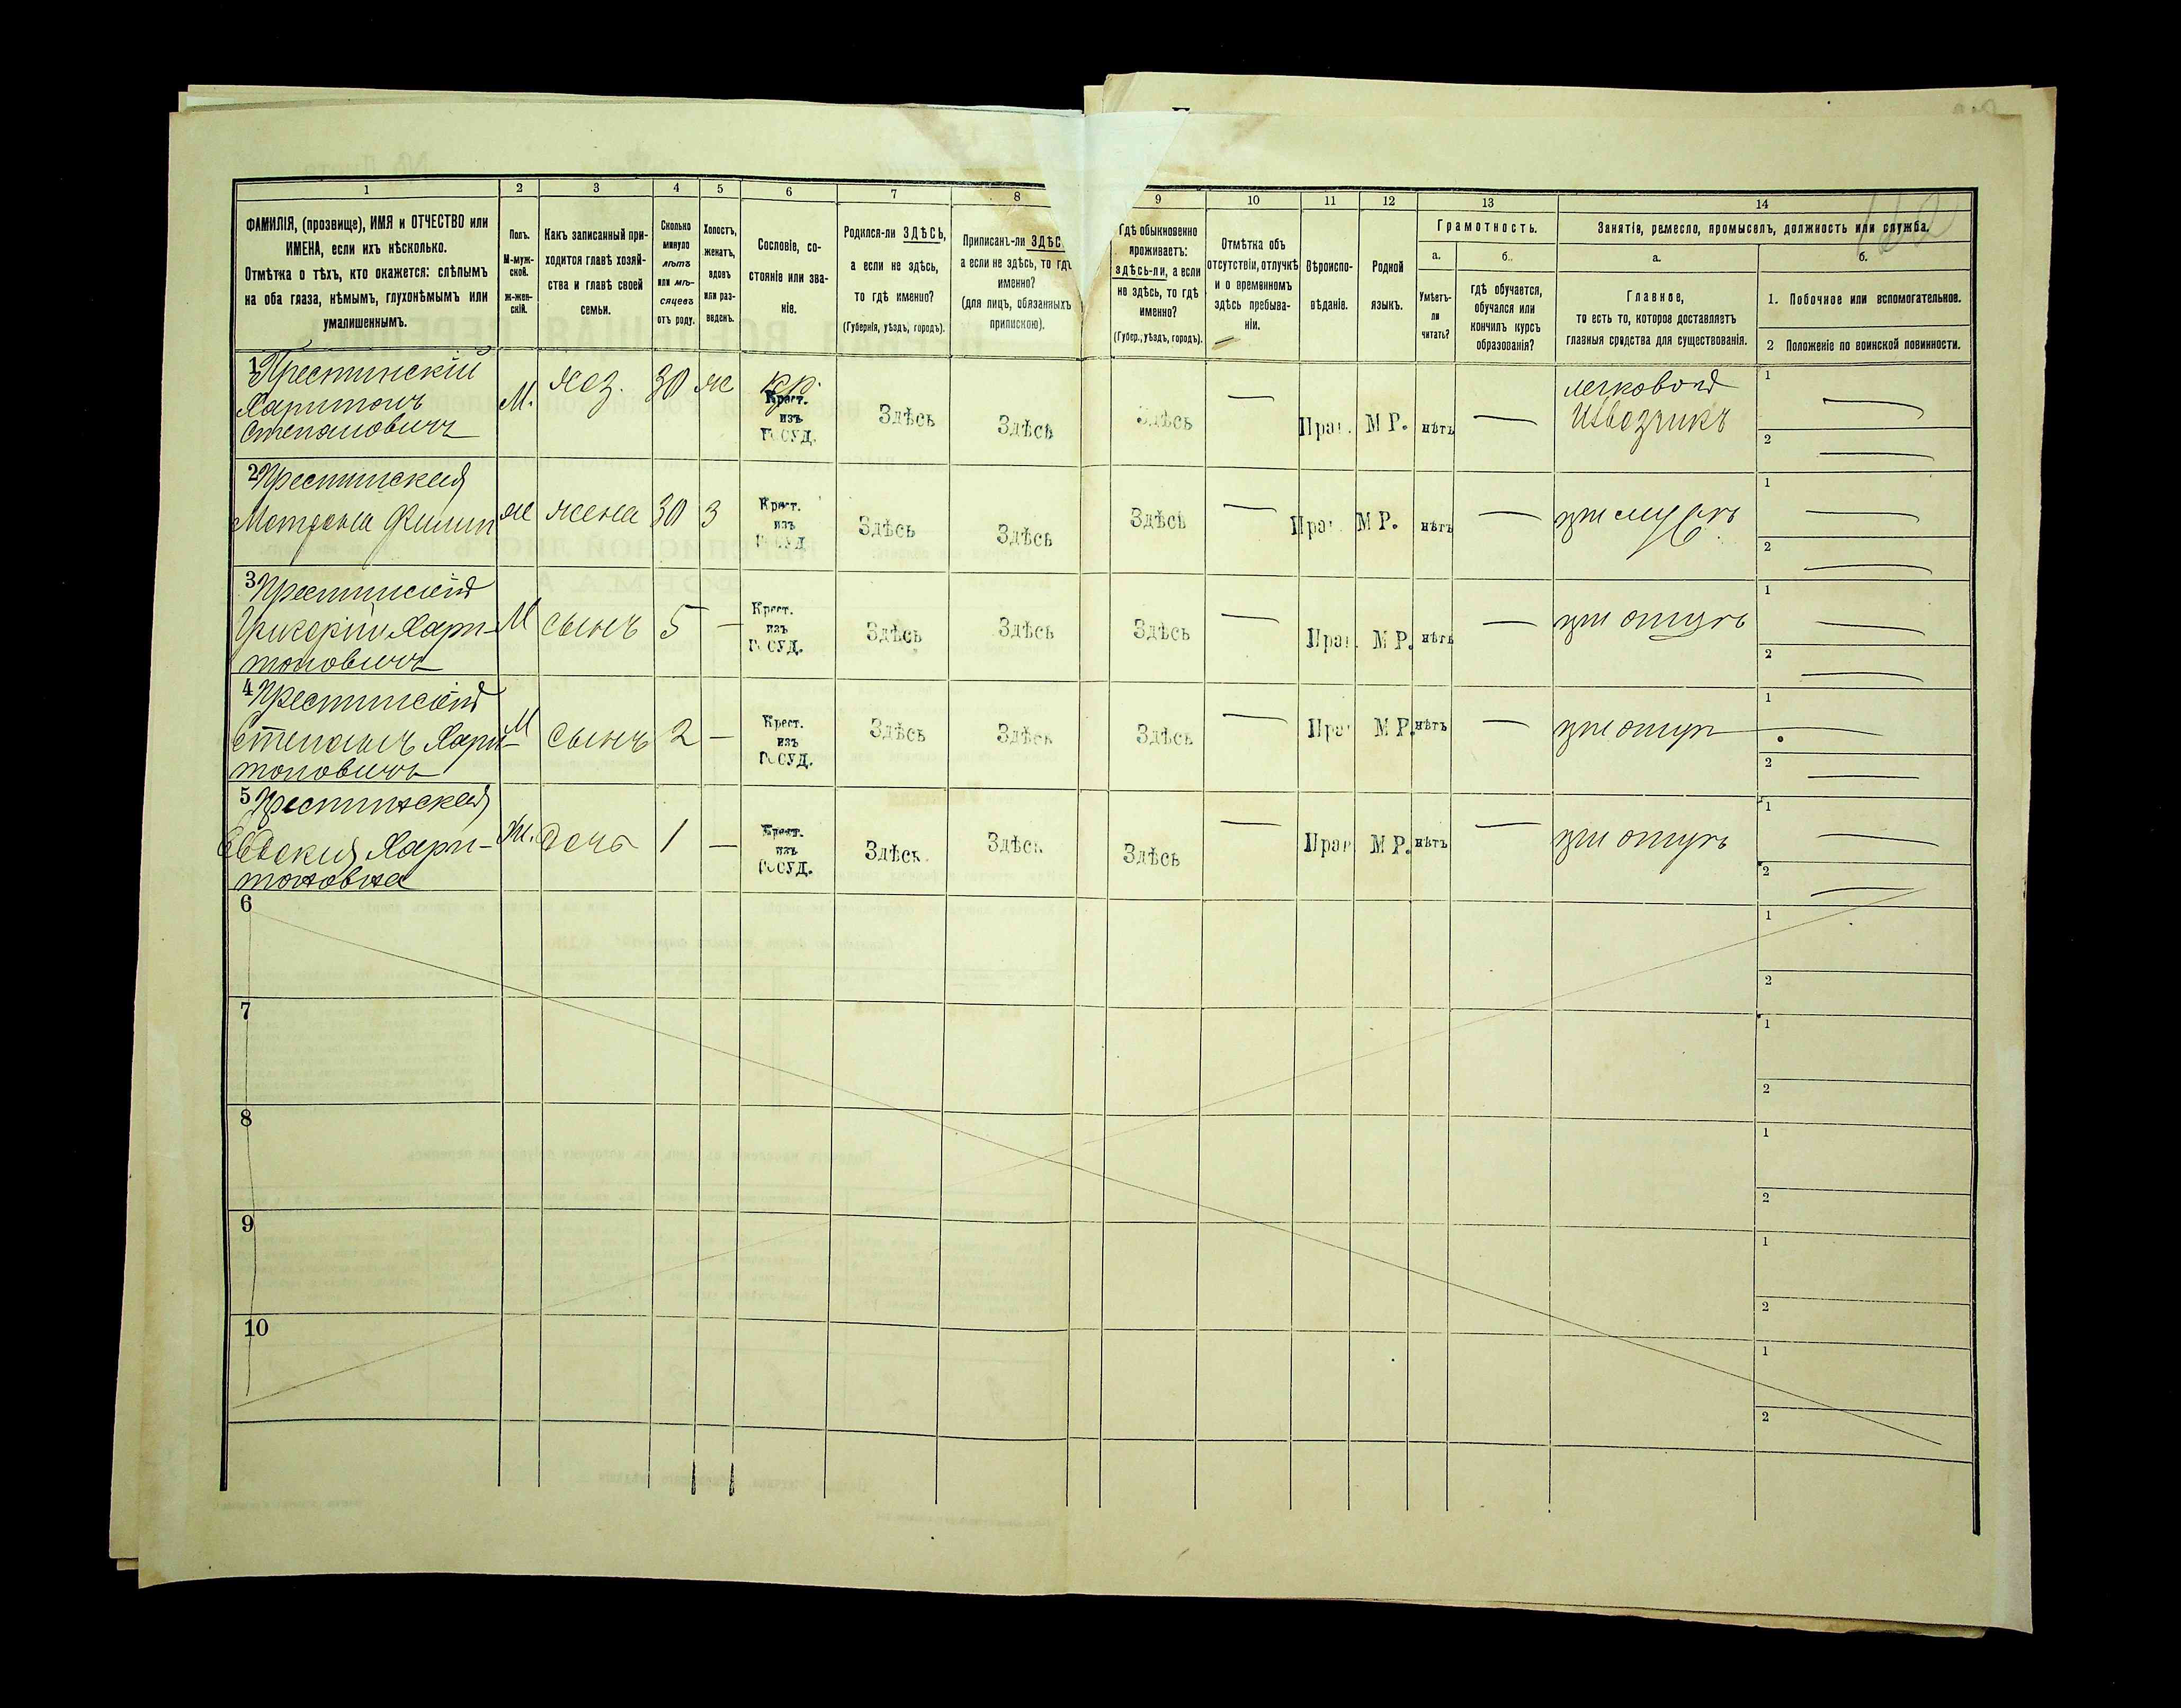 1 2 3 4 5 6 7 8 9 10 11 12 13 14
ФАМИЛІЯ, (прозвище), ИМЯ и ОТЧЕСТВО или
ИМЕНА, если ихъ нѣсколько.
Отмѣтка о тѣхъ, кто окажется: слѣпымъ
на оба глаза, нѣмымъ, глухонѣмымъ или
умалишеннымъ.
Полъ.
М-муж-
ской.
ж-жен-
скій.
Какъ записанный при-
ходится главѣ хозяй-
ства и главѣ своей
семьи.
Сколько
минуло
лѣтъ
или мѣ-
сяцевъ
отъ роду.
Холостъ,
женатъ,
вдовъ
или раз-
веденъ.
Сословіе, со-
стояніе или зва-
ніе.
Родился-ли ЗДѢСЬ,
а если не здѣсь,
то гдѣ именно?
(Губернія, уѣздъ, городъ).
Приписанъ-ли ЗДѢС
а если не здѣсь, то гдѣ
именно?
(для лицъ, обязанныхъ
припискою).
Гдѣ обыкновенно
проживаетъ:
здѣсь-ли, а если
не здѣсь, то гдѣ
именно?
(Губер., уѣздъ, городъ).
Отмѣтка объ
отсутствіи, отлучкѣ
и о временномъ
здѣсь пребыва-
ніи.
Вѣроиспо-
вѣданіе.
Родной
языкъ.
Грамотность.
а.
Умѣетъ-
ли
читать?
б.
гдѣ обучается,
обучался или
кончилъ курсъ
образованія?
Занятіе, ремесло, промыселъ, должность или служба.
а.
Главное,
то есть то, которое доставляетъ
главныя средства для существованія.
б.
1. Побочное или вспомогательное.
2 Положеніе по воинской повинности.
1 Крестинскій
Харитонъ
Степановичъ
М. хоз. 30 ж кр.
Крест.
изъ
ГОСУД.
Здѣсь Здѣсь Здѣсь — Прав. М Р. нѣтъ —
легковой
Извозчикъ
1 —
2 —
2 Крестинская
Матрена Филип
ж жена 30 З
Крест.
изъ
ГОСУД
Здѣсь Здѣсь Здѣсь — Прав М Р. нѣтъ — при мужѣ
1 —
2 —
3 Крестинскій
Григорій Хари-
тоновичъ
М сынъ 5 —
Крест.
изъ
ГОСУД.
Здѣсь Здѣсь Здѣсь — Прав. М Р. нѣтъ — при отцѣ
1 —
2 —
4 Крестинскій
Степанъ Хари-
тоновичъ
М сынъ 2 —
Крест.
изъ
ГОСУД.
Здѣсь Здѣсь Здѣсь — Прав М Р. нѣтъ — при отцѣ
1 —
2 —
5 Крестинская
Евдокия Хари-
тоновна
Ж. дочь 1 —
Крест.
изъ
ГОСУД.
Здѣсь Здѣсь Здѣсь — Прав М Р. нѣтъ — при отцѣ
1 —
2 —
6
1
2
7
1
2
8
1
2
9
1
2
10
1
2